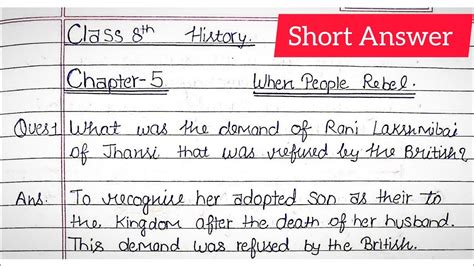 Class 8th History.
Short Answer
Chapter-5 When People Rebel.
Ques1 What was the demand of Rani Lakshmibai
of Jhansi that was refused by the British?
Ans. To recognise her adopted son as their to
the Kingdom after the death of her husband.
This demand was refused by the British.